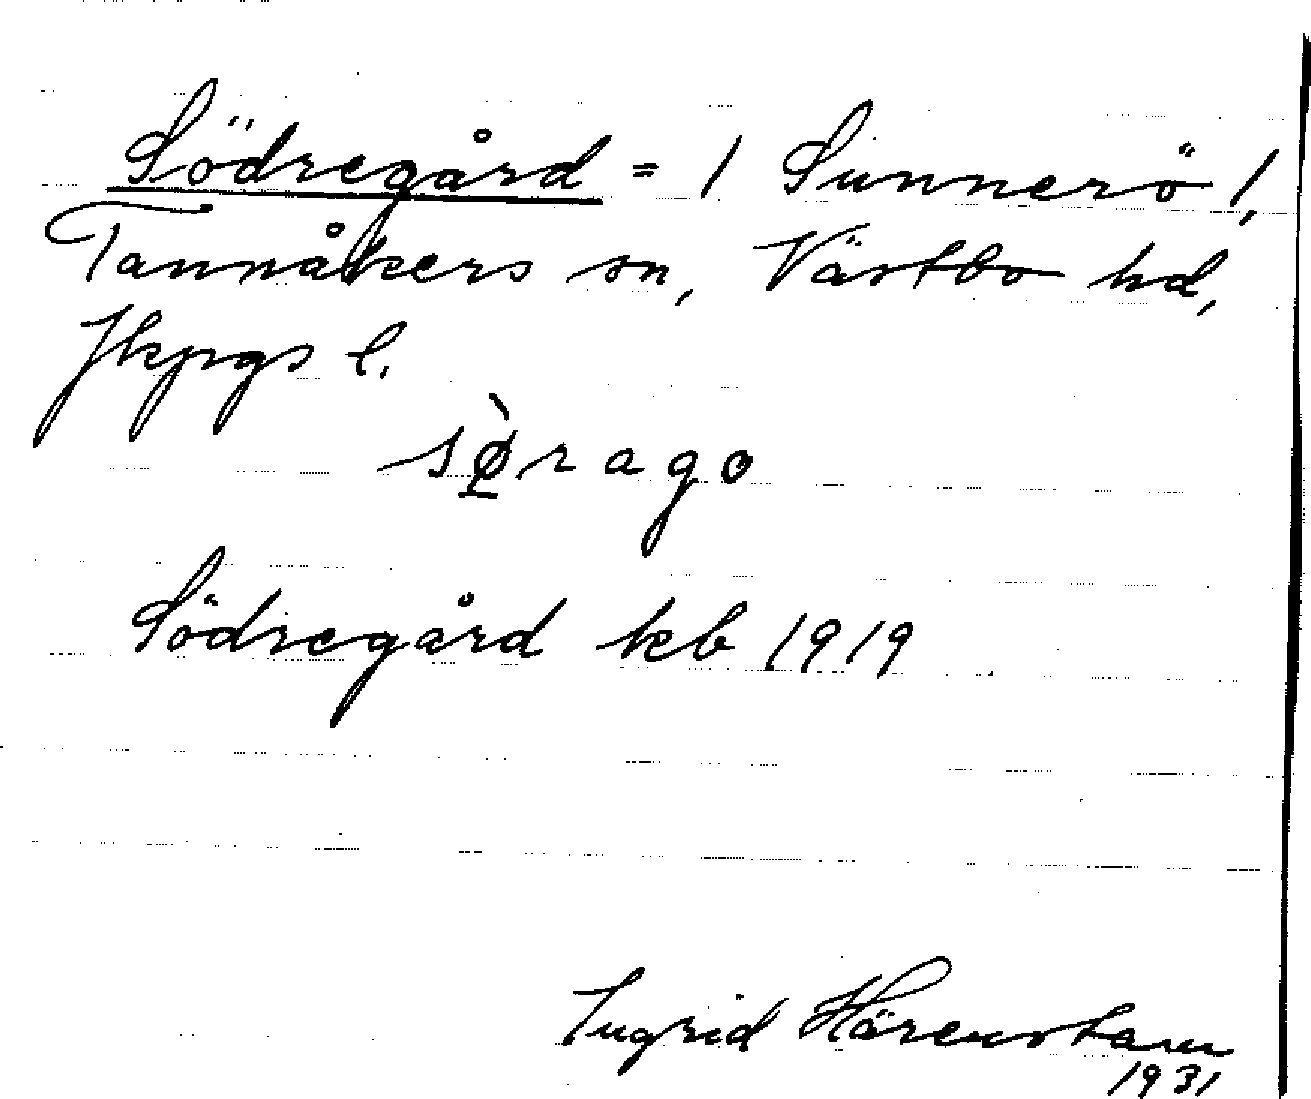 Södregård = 1 Sunnerö 1,
Tannåkers sn, Västbo hd,
Jkpgs l.
sø̀rago
Södregård kb 1919
Ingrid Härenstam
1931